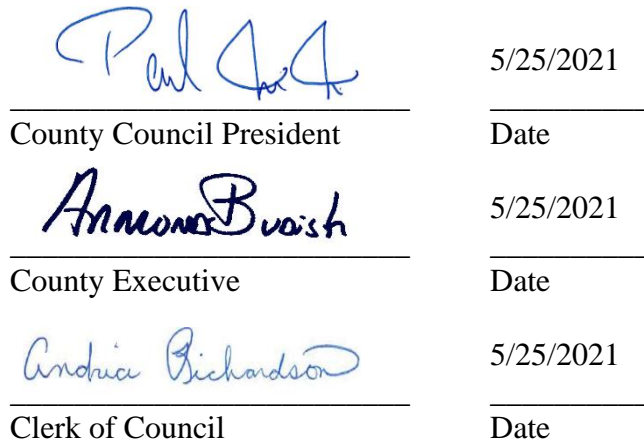 Paul 5/25/2021
County Council President Date
5/25/2021
County Executive Date
Andria Richardson 5/25/2021
Clerk of Council Date